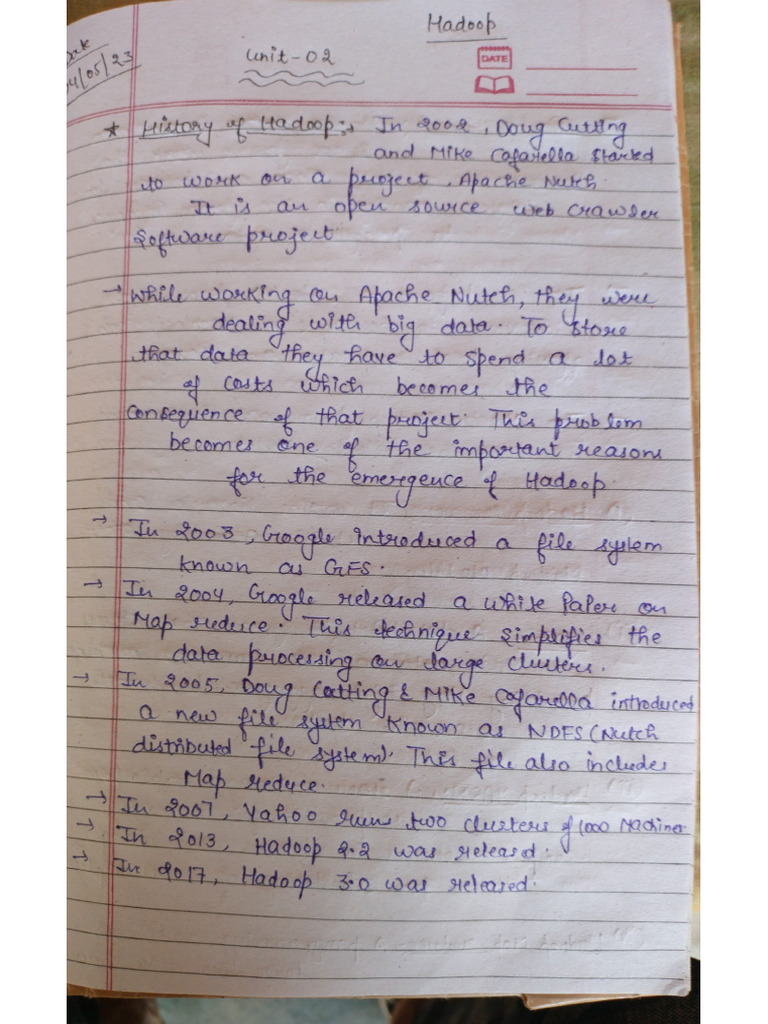 Hadoop
Date
04/05/23
Unit-02
DATE
* History of Hadoop:→ In 2002, Doug Cutting
and Mike Cafarella started
to work on a project, Apache Nutch.
It is an open source web crawler
Software project
→ While working on Apache Nutch, they were
dealing with big data. To store
that data they have to spend a lot
of costs which becomes the
consequence of that project. This problem
becomes one of the important reasons
for the emergence of Hadoop.
→ In 2003, Google introduced a file system
known as GFS.
→ In 2004, Google released a white Paper on
Map reduce. This technique simplifies the
data processing on large clusters.
→ In 2005, Doug Cutting & Mike Cafarella introduced
a new file system known as NDFS (Nutch
distributed file system). This file also includes
Map reduce.
→ In 2007, Yahoo run two clusters of 1000 Machines
→ In 2013, Hadoop 2.2 was released.
→ In 2017, Hadoop 3.0 was released.